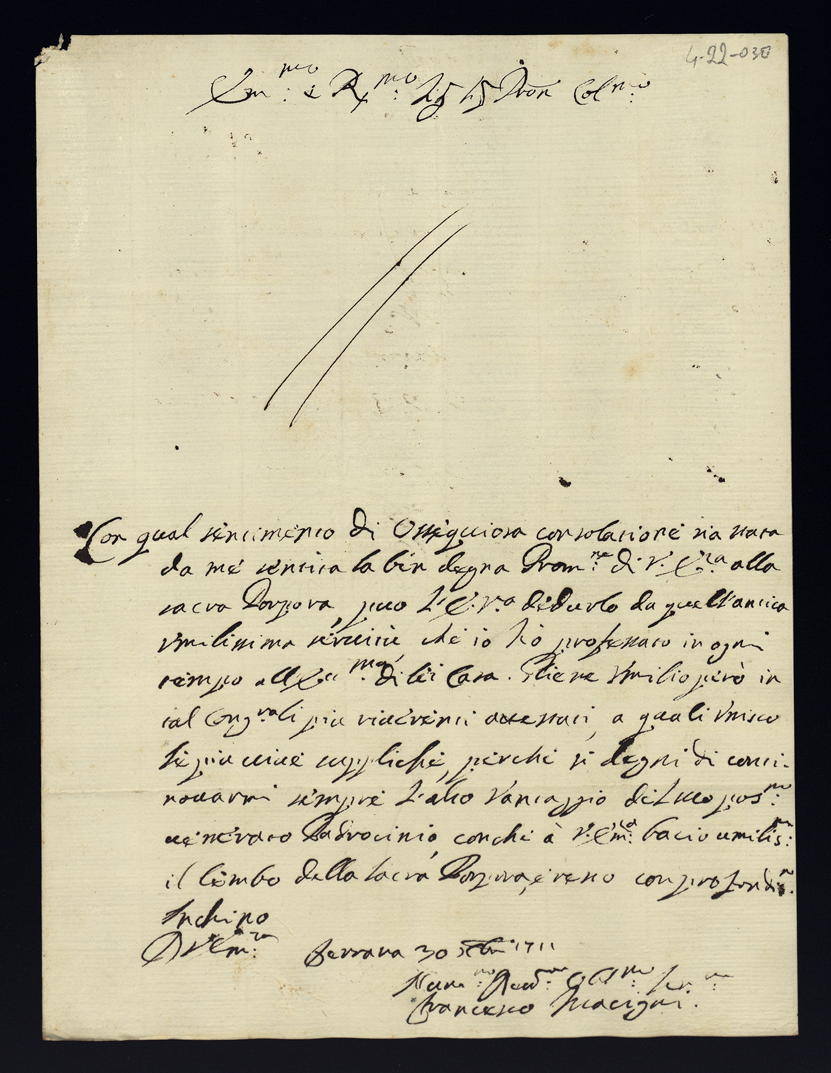 4-22-030
Em:mo e R:mo Sig Sig Pron Col:mo
Con qual sentimento di Ossequiosa consolatione sia stata
da me sentita la ben degna Prom:ne di V. Em:za alla
sacra Porpora, puo L'E. V.a dedurlo da quell'antica
Umilissima servitù, che io hò professato in ogni
tempo all' Ecc:ma di lei Casa. Gliene Umilio però in
tal Cong.li più riverenti attestati, a quali Unisco
le più vive suppliche, perche si degni di conti-
novarmi sempre L'alto Vantaggio del suo pos:mo
venerato Padrocinio, conche à V. Em:za bacio umilis:mo
il Lembo della Sacra Porpora, e resto con profondis:mo
Inchino
D V Em:za Ferrara 30 1711
Hum:mo Deu:mo Obl:mo Ser:re
Francesco